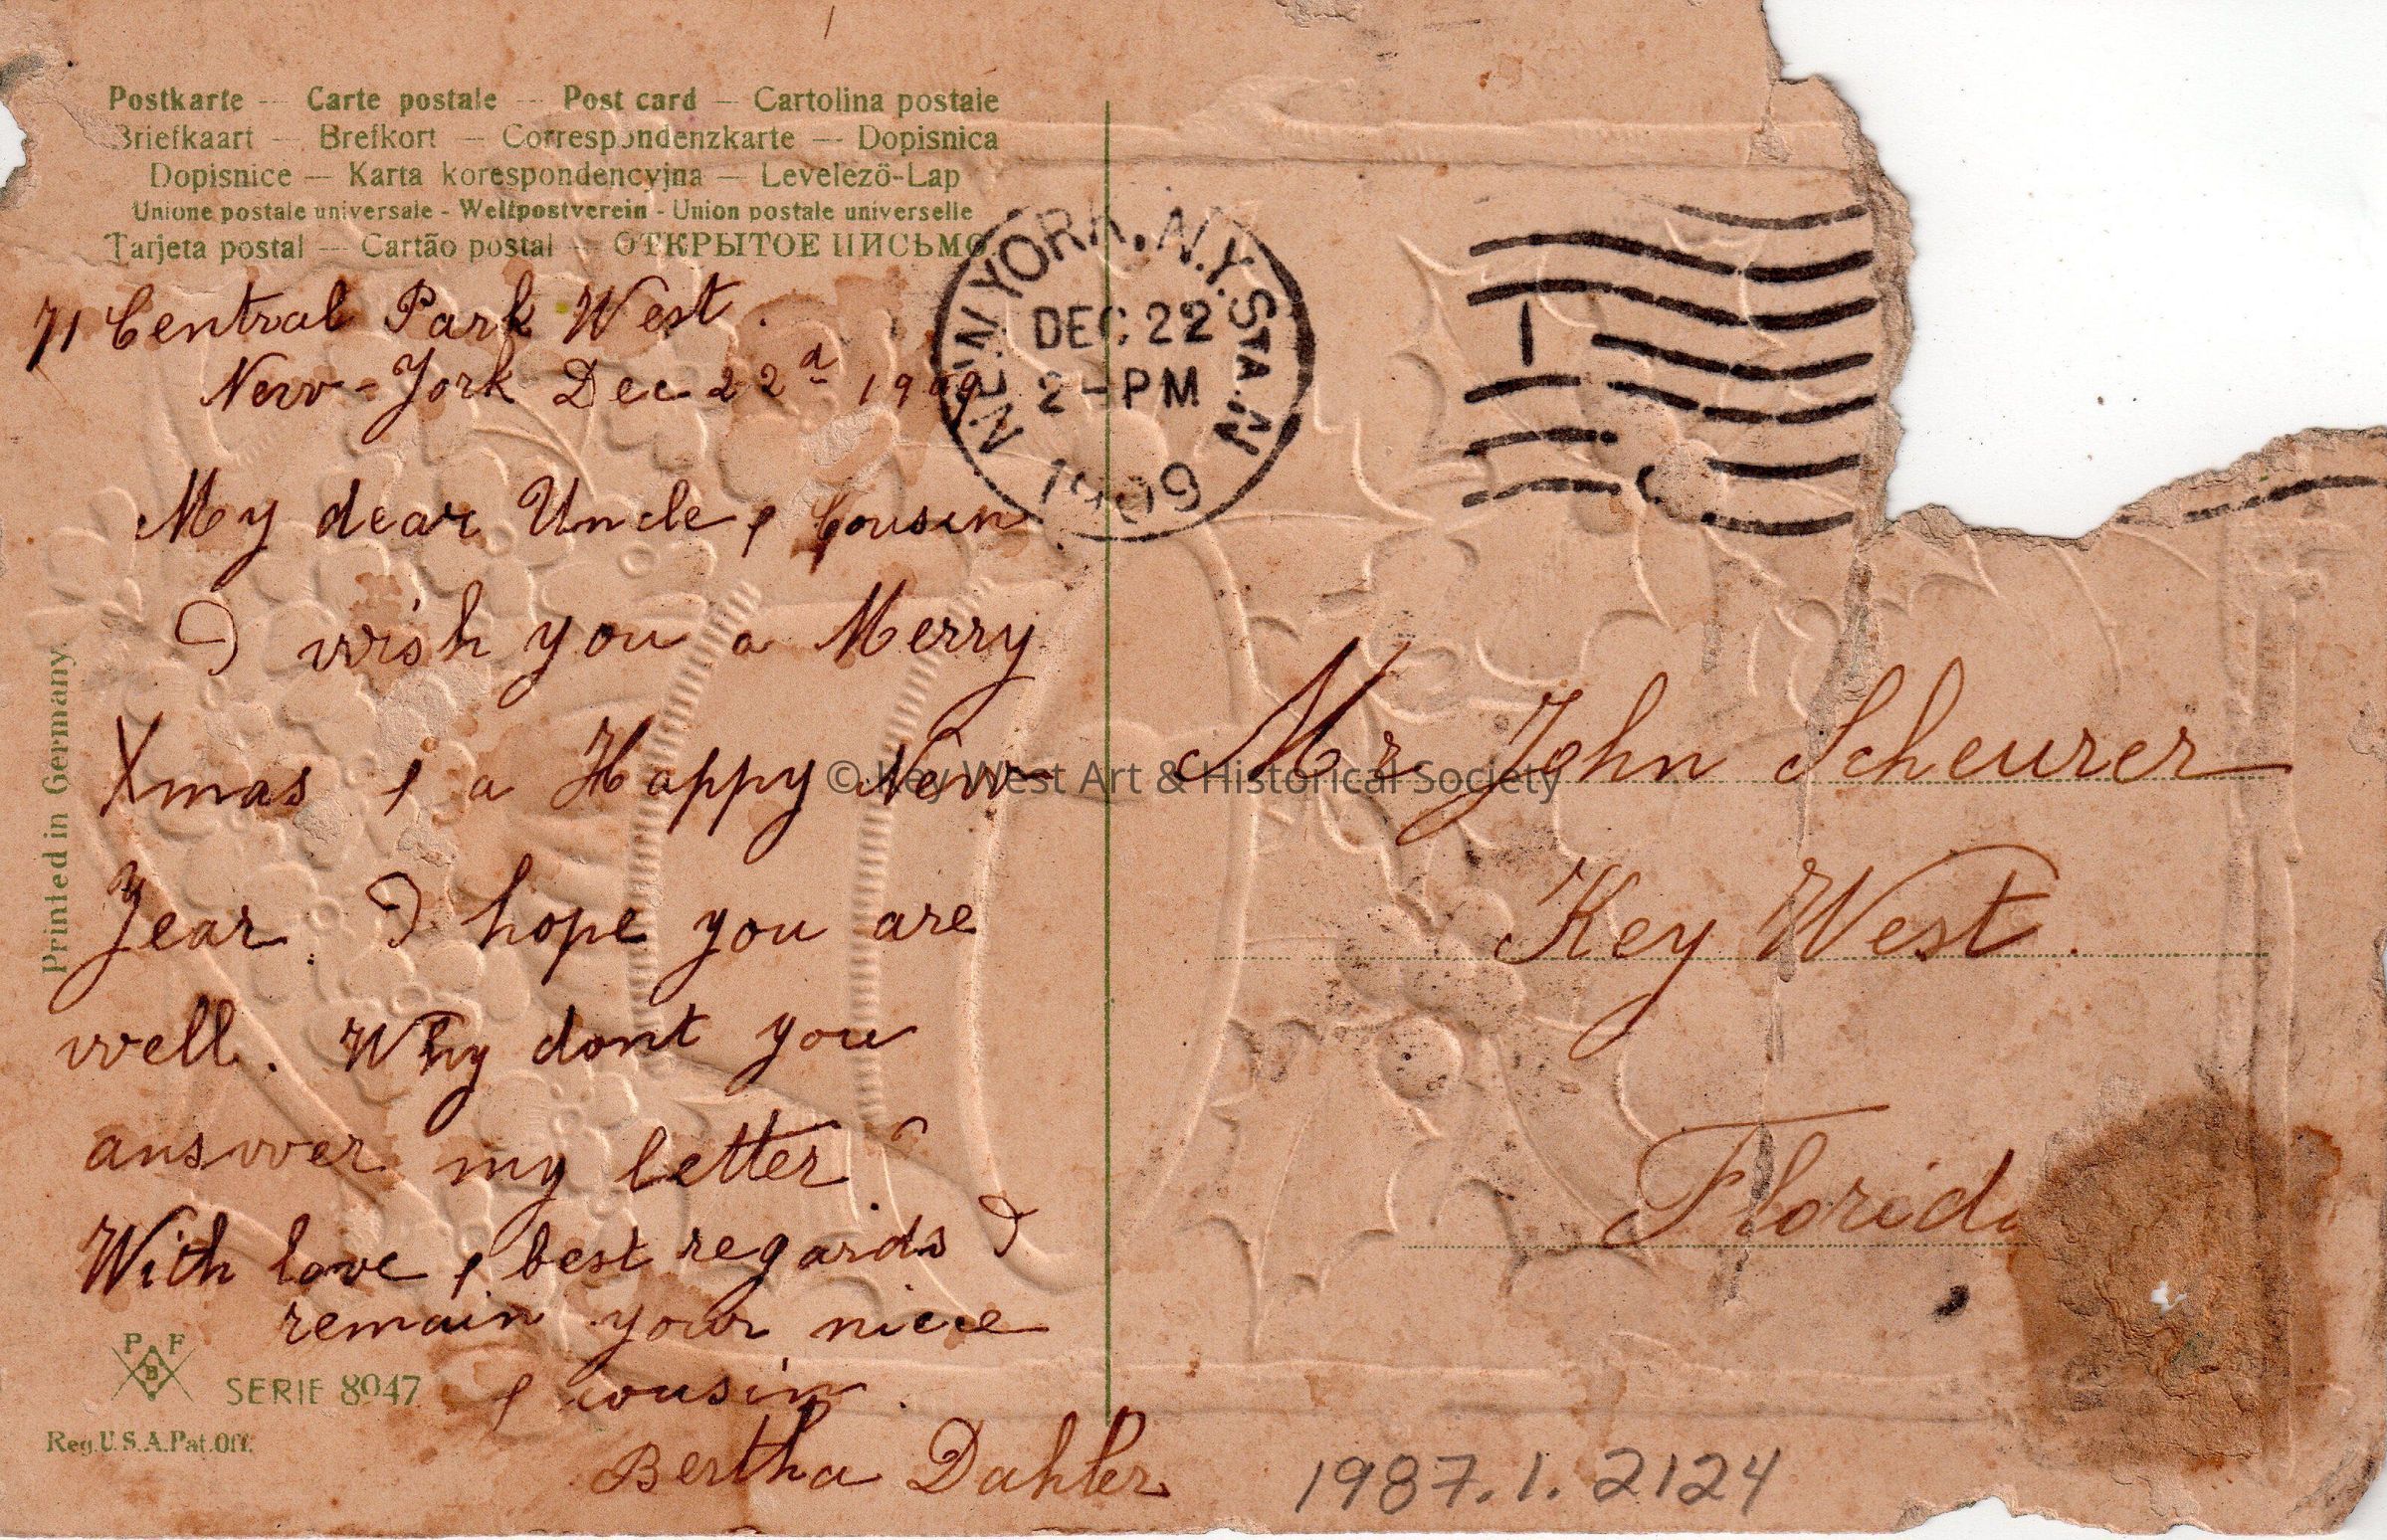 Postkarte — Carte postale — Post card — Cartolina postale
Briefkaart — Brefkort — Correspondenzkarte — Dopisnica
Dopisnice — Karta korespondencyjna — Levelező-Lap
Unione postale universale - Weltpostverein - Union postale universelle
Tarjeta postal — Cartão postal — ОТКРЫТОЕ ПИСЬМО
71 Central Park West.
New-York Dec. 22d 1909
My dear Uncle & Cousin
I wish you a Merry
Xmas & a Happy New
Year. I hope you are
well. Why dont you
answer my letter?
With love & best regards I
remain your niece
& cousin.
Bertha Dahler
Printed in Germany.
P F
B
SERIE 8047
Reg.U.S.A.Pat.Off.
NEW YORK, N.Y. STA. N
DEC 22
2-PM
1909
1
Mr John Scheurer
Key West.
Florida
© Key West Art & Historical Society
1987.1.2124